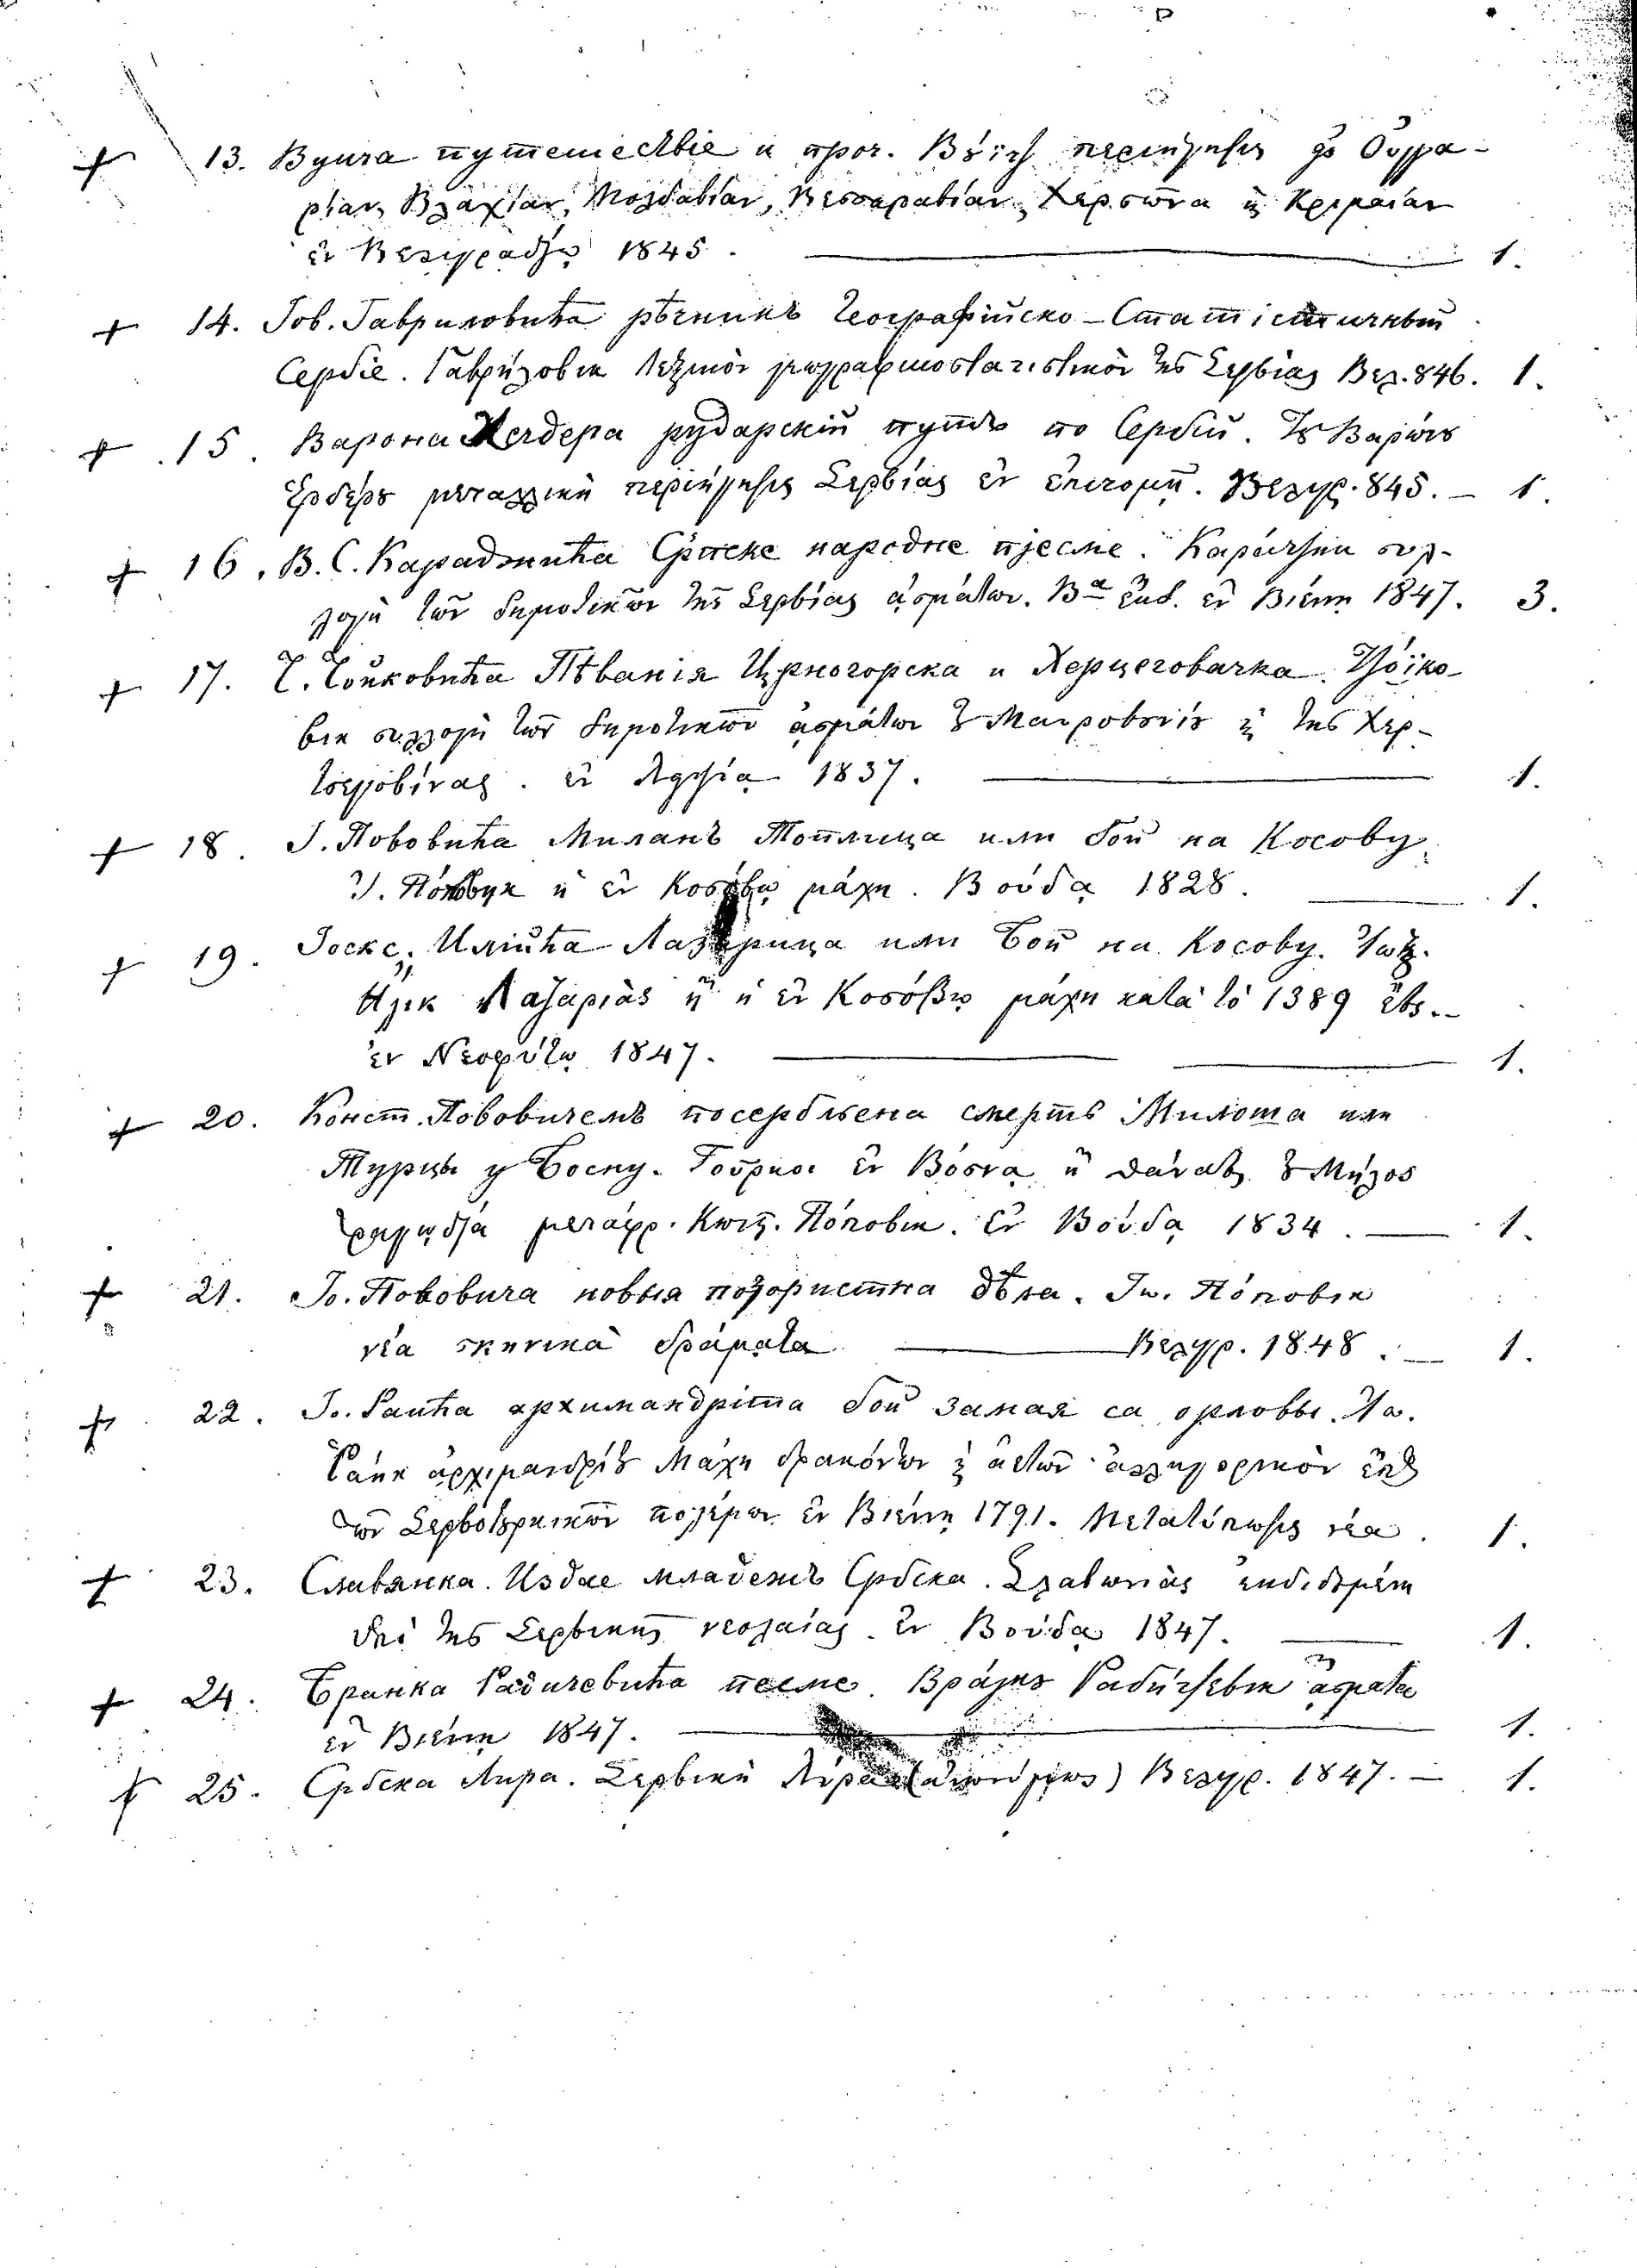 + 13. Вуича путешествіе и проч. Βύϊτζ περιήγησις εἰς Οὑγγα-
ρίαν, Βλαχίαν, Μολδαβίαν, Βεσσαραβίαν, Χερσῶνα κ Κριμαίαν
ἐν Βελιγραδίῳ 1845. — 1.
+ 14. Јов. Гавриловића рѣчникъ Географійско-Статістичный
Сербіе. Γαβρίλοβικ λεξικὸν γεωγραφικοστατιστικὸν τῆς Σερβίας Βελ. 846. 1.
+ 15. Барона Хердера рударскій путъ по Сербіи. Τȣ Βαρώνȣ
Ἑρδέρȣ μεταλλικὴ περιήγησις Σερβίας ἐν ἐπιτομῇ. Βελιγρ. 845. — 1.
+ 16. В. С. Караджића Српске народне пјесме. Καράτζικ συλ-
λογὴ τῶν δημοτικῶν τῆς Σερβίας ᾀσμάτων. Βα ἔκδ. ἐν Βιέννῃ 1847. 3.
+ 17. Ч. Чойковића Пѣванія Црногорска и Херцеговачка. Τζόϊκο-
βικ συλλογὴ τῶν δημοτικῶν ᾀσμάτων τȣ Μαυροβουνίȣ κ τῆς Χερ-
τσεγοβίνας. ἐν Λειψίᾳ 1837. — 1.
+ 18. Ј. Поповића Миланъ Топлица или бой на Косову.
Ἰ. Πόποβικ ἡ ἐν Κοσόβῳ μάχη. Βούδᾳ 1828. — 1.
+ 19. Јоксе. Илића Лазарица или Бой на Косову. Ἰωξ.
Ἤλικ Λαζαριὰς ἢ ἡ ἐν Κοσόβῳ μάχη κατὰ τὸ 1389 ἔτος.-
ἐν Νεοφύτῳ 1847. — 1.
+ 20. Конст. Поповичемъ посербљена смерть Милоша или
Турцы у Босну. Τοῦρκοι ἐν Βόσνᾳ ἢ θάνατος τȣ Μήλος
τραγῳδία μεταφρ. Κωνς. Πόποβικ. ἐν Βούδᾳ 1834. — 1.
+ 21. Јо. Поповича новыя позористна дѣла. Ἰω. Πόποβικ
νέα σκηνικὰ δράματα — Βελιγρ. 1848. — 1.
+ 22. Јо. Раића архимандріта бой змая са орловы. Ἰω.
Ράικ ἀρχιμανδρίτȣ Μάχη δρακόντων κ ἀετῶν ἀλληγορικὸν ἔπος
τῶν Σερβοτȣρκικῶν πολέμων ἐν Βιέννῃ 1791. Μετατύπωσις νέα. 1.
+ 23. Славянка. Издае младежъ Србска. Σλαβωνιὰς ἐκδιδομένη
ὑπὸ τῆς Σερβικῆς νεολαίας. ἐν Βούδᾳ 1847. — 1.
+ 24. Бранка Радичевића песме. Βράνκȣ Ραδίτζεβικ ᾄσματα
ἐν Βιέννῃ 1847. — 1.
+ 25. Србска Лира. Σερβικὴ Λύρα (ἀνωνύμως) Βελιγρ. 1847. — 1.